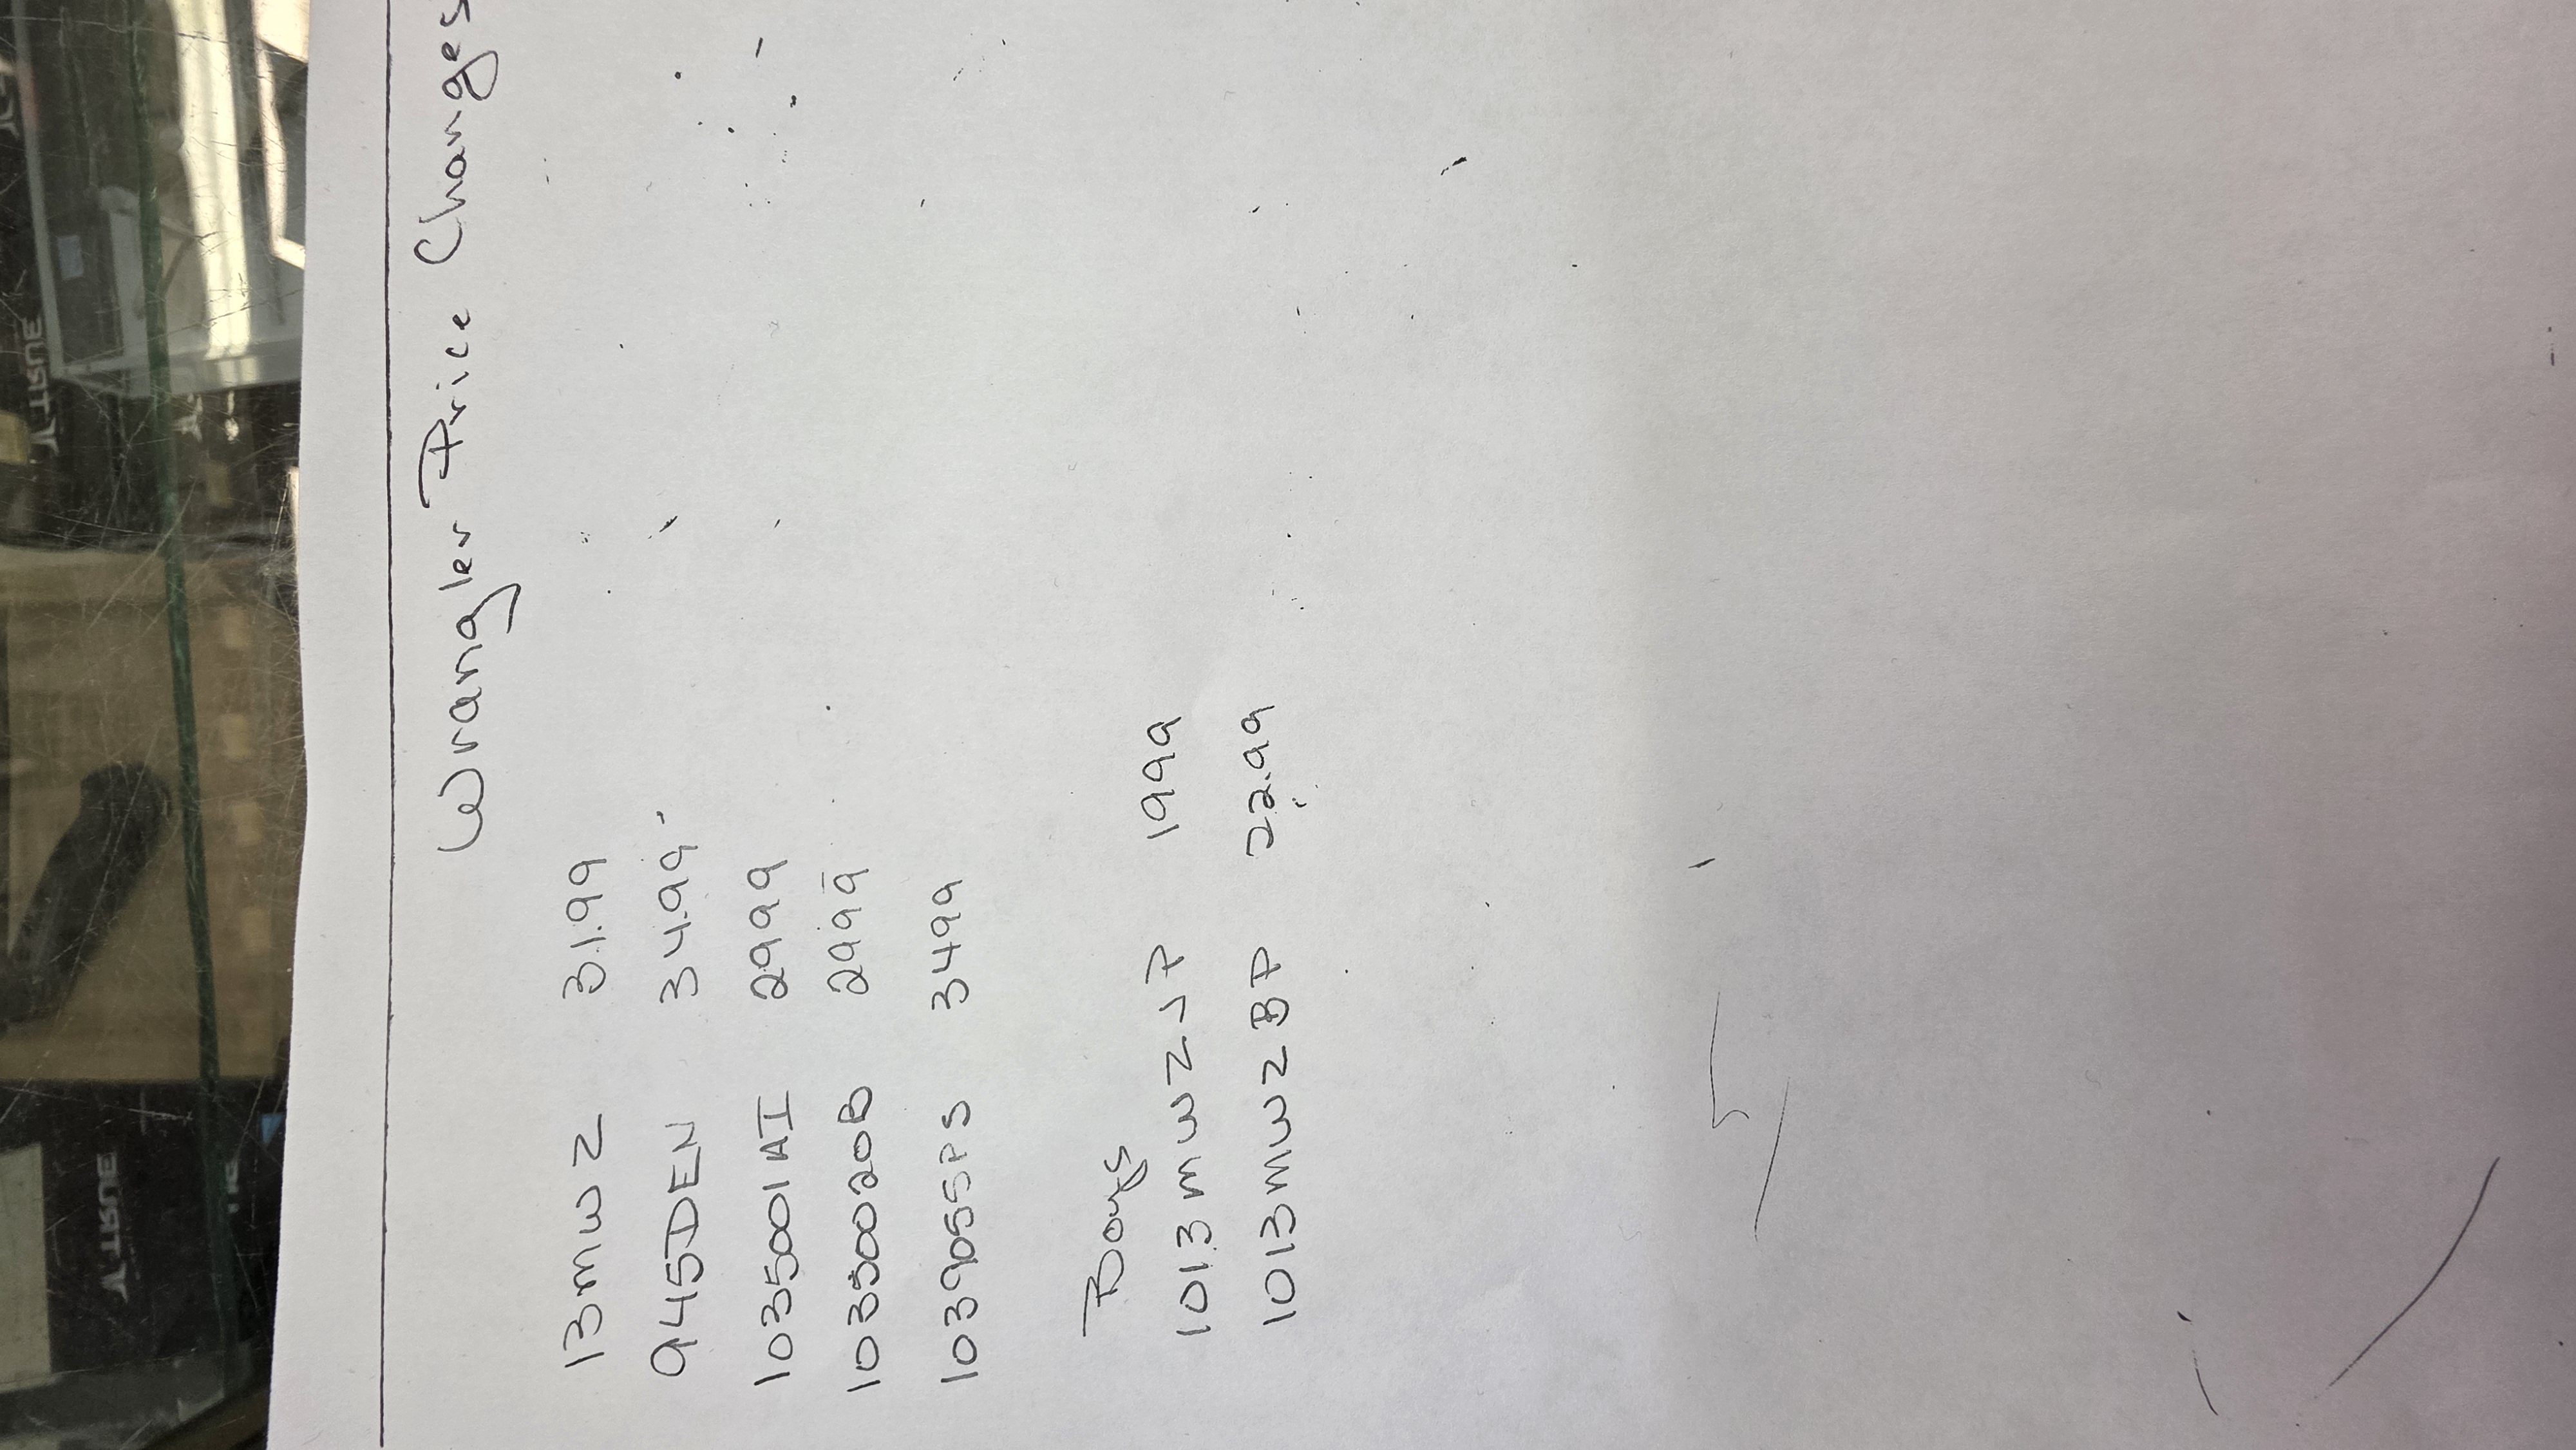 Wrangler Price Changes
13mwz 31.99
945DEN 34.99
103500IAI 2999
10350020B 2999
1039055PS 3499
Boys
1013mwzJP 1999
1013mwzBP 22.99
TRUE
TRUE